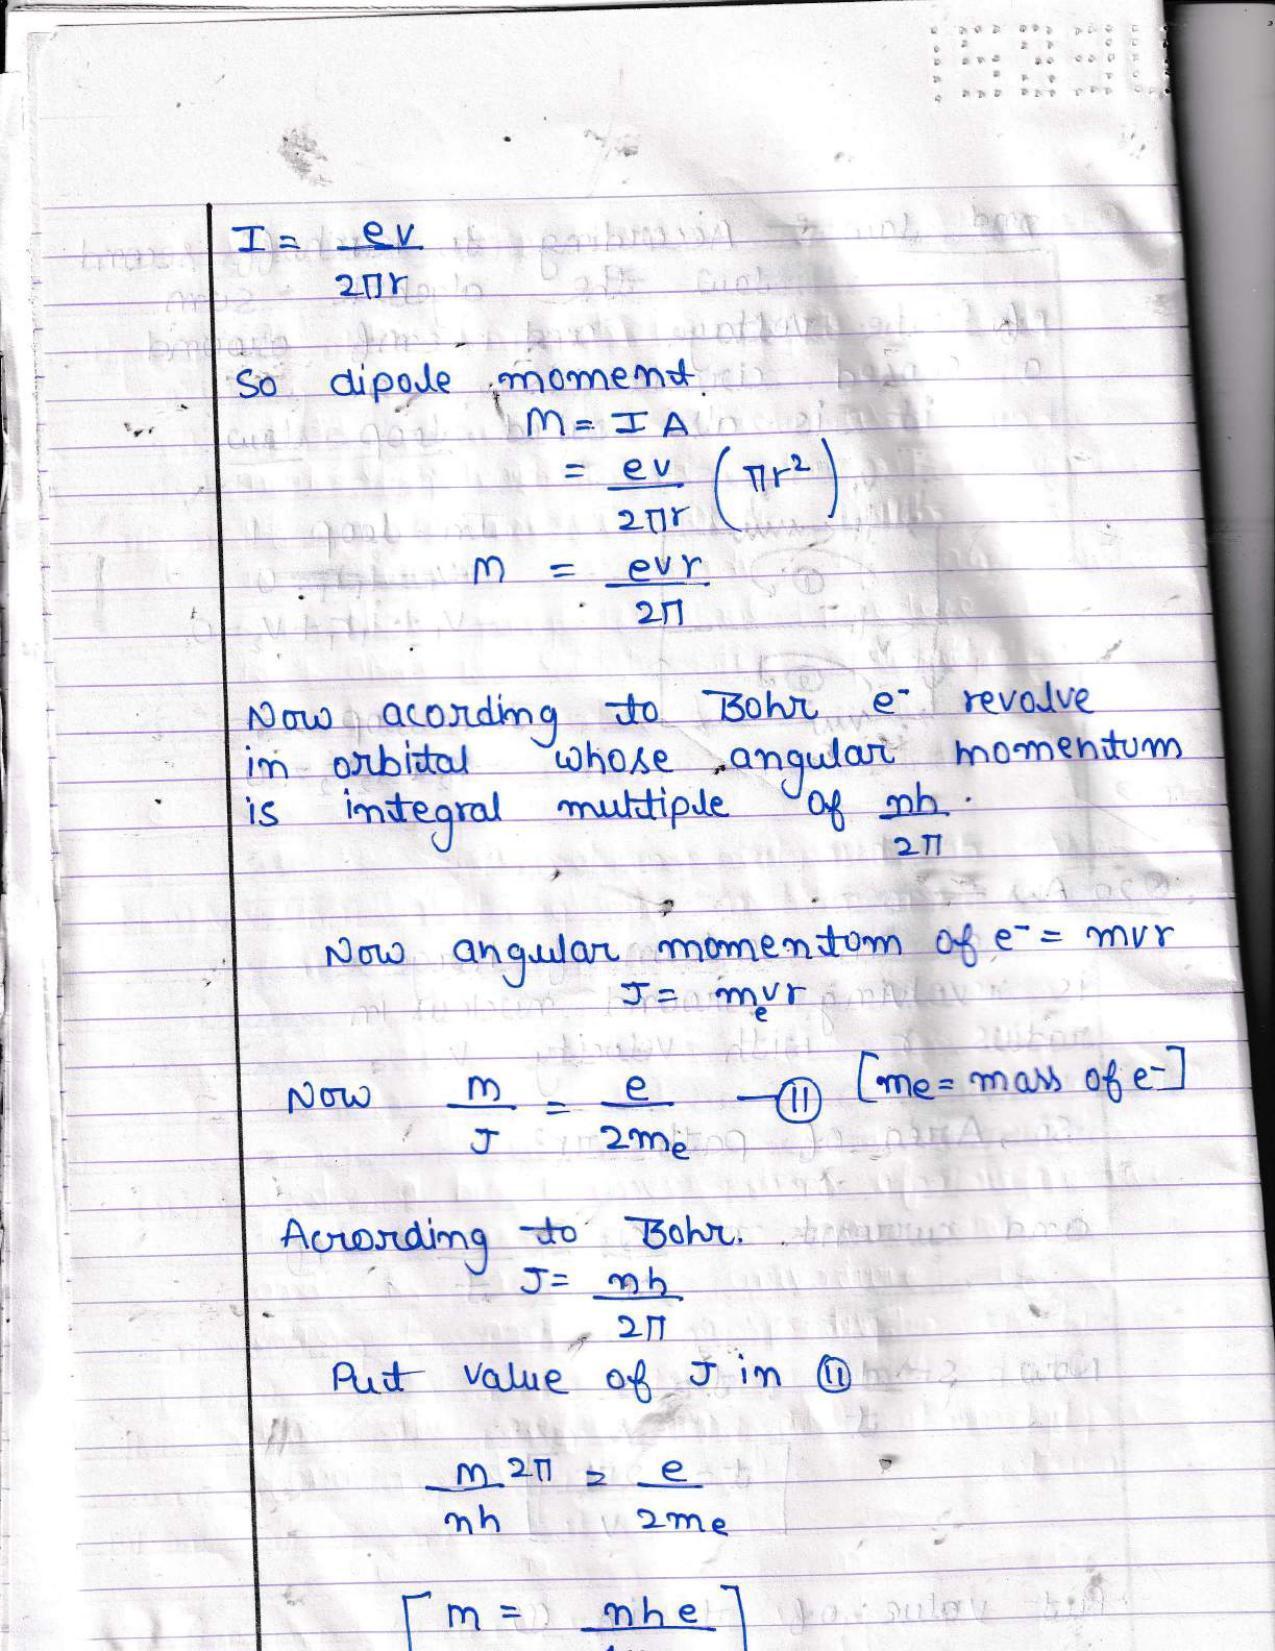 I = ev
2πr
So dipole moment
M = I A
= ev (πr²)
2πr
M = evr
2π
Now acording to Bohr e⁻ revolve
in orbital whose angular momentum
is integral multiple of nh.
2π
Now angular momentum of e⁻ = mvr
J = mₑvr
Now m = e —(11) [me = mass of e⁻]
J 2me
Acording to Bohr.
J = nh
2π
Put value of J in (11)
m 2π = e
nh 2me
[m = nhe]